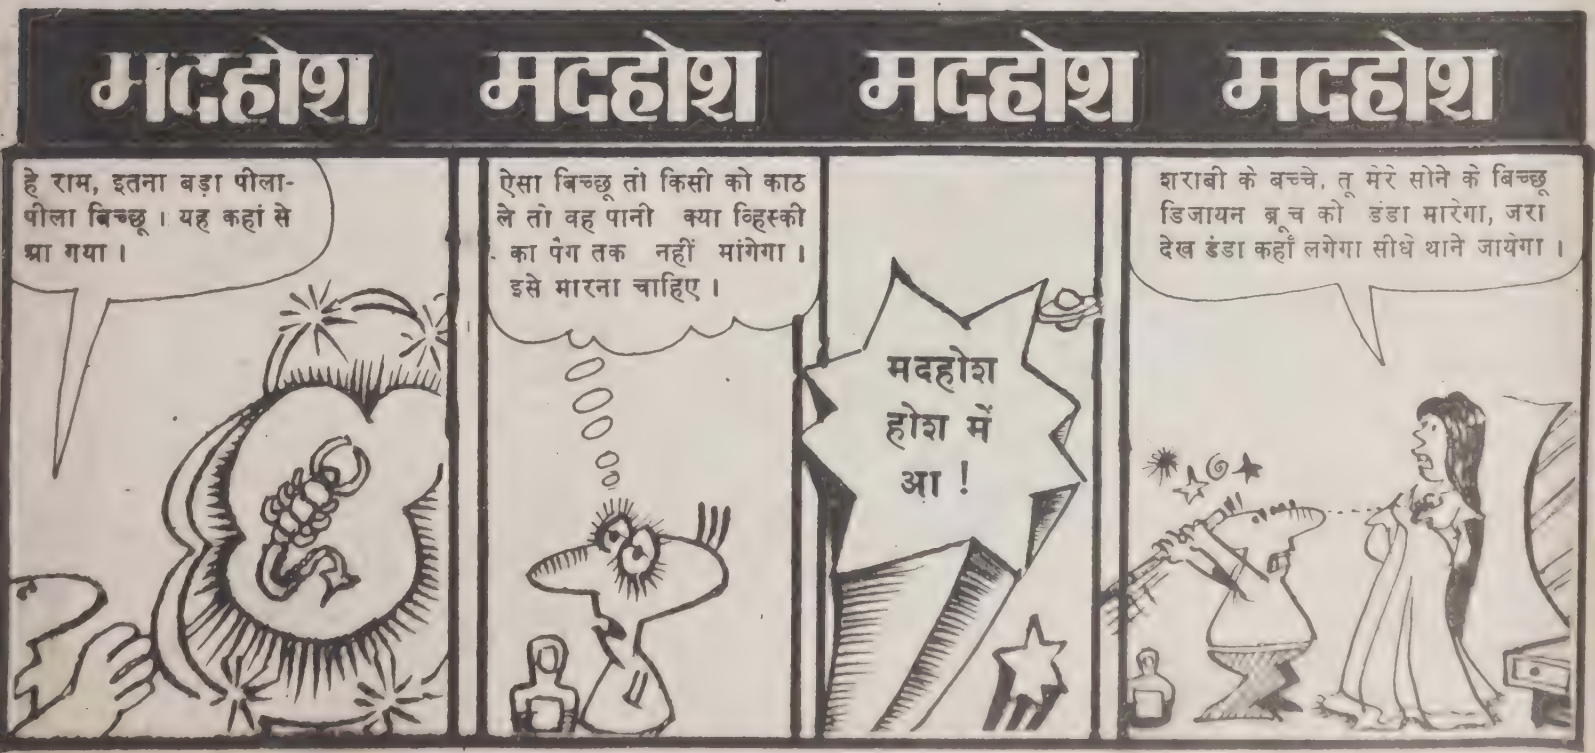 मदहोश मदहोश मदहोश मदहोश
हे राम, इतना बड़ा पीला-
पीला बिच्छू । यह कहां से
आ गया ।
ऐसा बिच्छू तो किसी को काठ
ले तो वह पानी क्या व्हिस्की
का पैग तक नहीं मांगेगा ।
इसे मारना चाहिए ।
मदहोश
होश में
आ !
शराबी के बच्चे, तू मेरे सोने के बिच्छू
डिजायन ब्रूच को डंडा मारेगा, जरा
देख डंडा कहाँ लगेगा सीधे थाने जायेगा ।